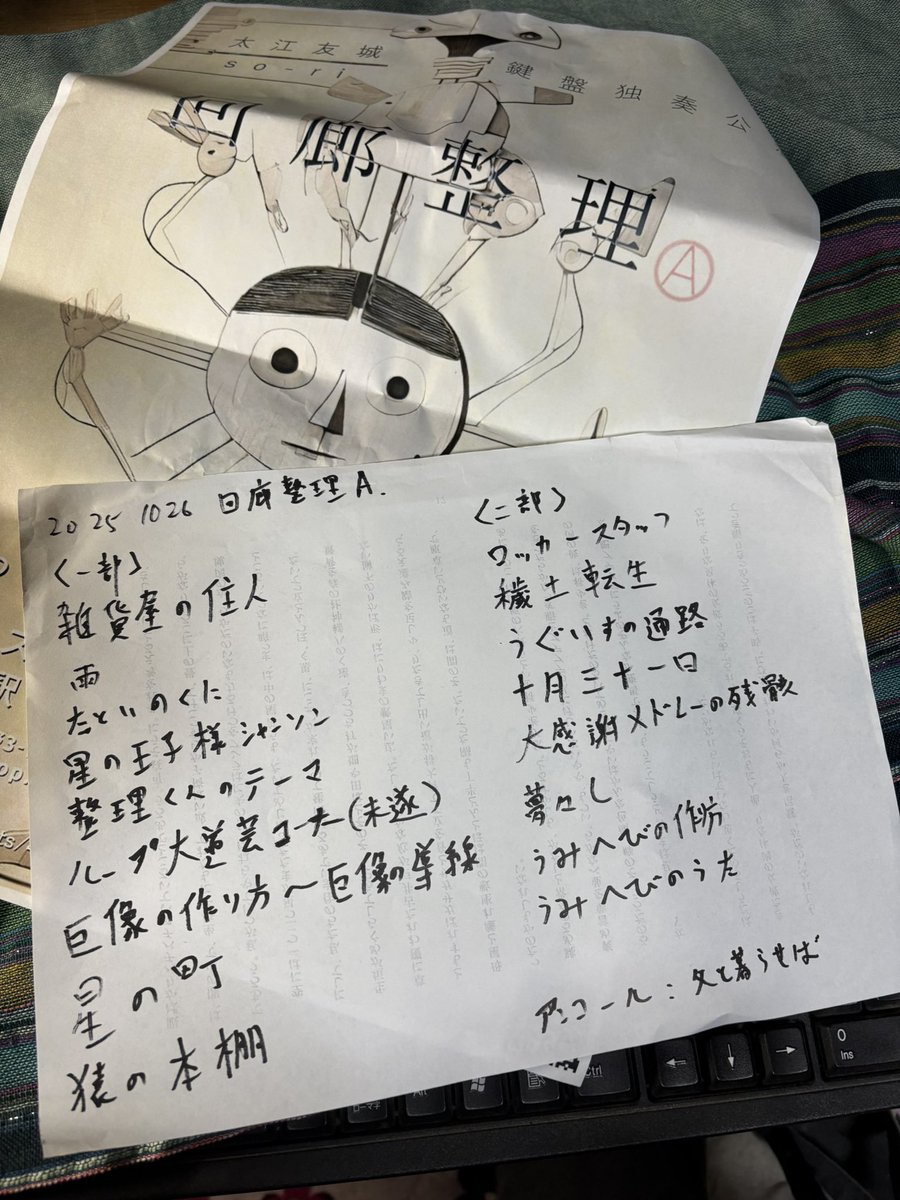 太江友城
so-ri
鍵盤独奏公
回廊整理
A
訳
2025 1026 回廊整理A.
〈一部〉
雑貨屋の住人
雨
たといのくに
星の王子様シャンソン
整理くんのテーマ
ループ大道芸コーナー(未遂)
巨像の作り方〜巨像の導線
星の町
猿の本棚
〈二部〉
ロッカースタッフ
穢土転生
うぐいすの通路
十月三十一日
大感謝メドレーの残骸
夢々し
うみへびの作方
うみへびのうた
アンコール:久と暮らせば
Alt
Ctrl
←
↓
→
0
Ins